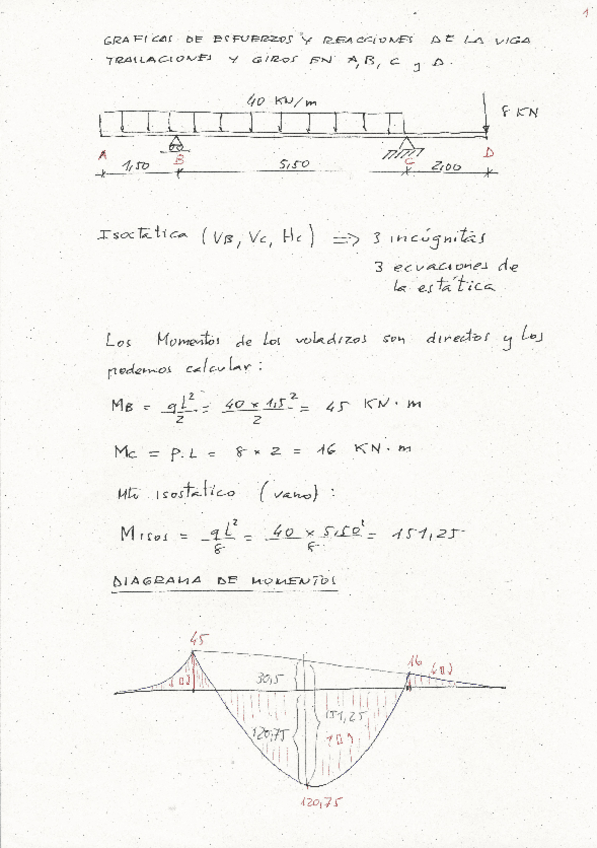 1
GRAFICAS DE ESFUERZOS Y REACCIONES DE LA VIGA
TRASLACIONES Y GIROS EN A, B, C y D.
40 KN/m
8 KN
A B C D
1,50 5,50 2,00
Isostática (VB, Vc, Hc) => 3 incógnitas
3 ecuaciones de
la estática
Los Momentos de los voladizos son directos y los
podemos calcular:
MB = qL²/2 = 40 × 1,5²/2 = 45 KN·m
Mc = P.L = 8 × 2 = 16 KN·m
Mto isostatico (vano):
Misos = qL²/8 = 40 × 5,50²/8 = 151,25
DIAGRAMA DE MOMENTOS
45
16
30,5
120,75
151,25
120,75